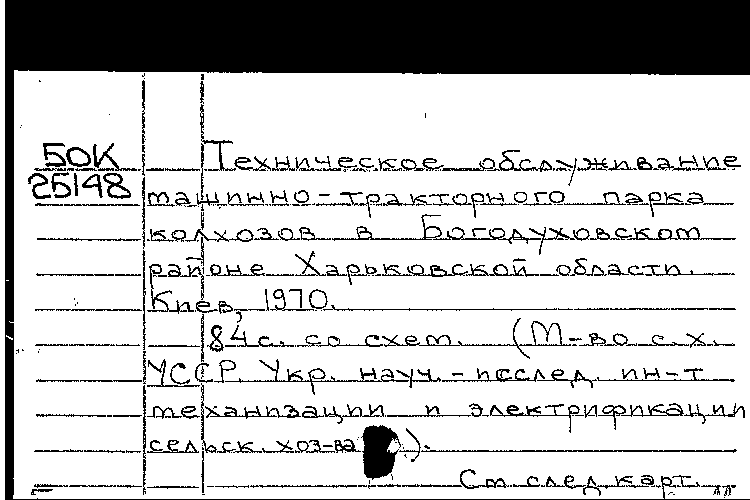 БОК Техническое обслуживание
25148 машинно-тракторного парка
колхозов в Богодуховском
районе Харьковской области.
Киев, 1970.
84с. со схем. (М-во с.х.
УССР. Укр. науч.-исслед. ин-т
механизации и электрификации
сельск. хоз-ва).
См. след. карт.